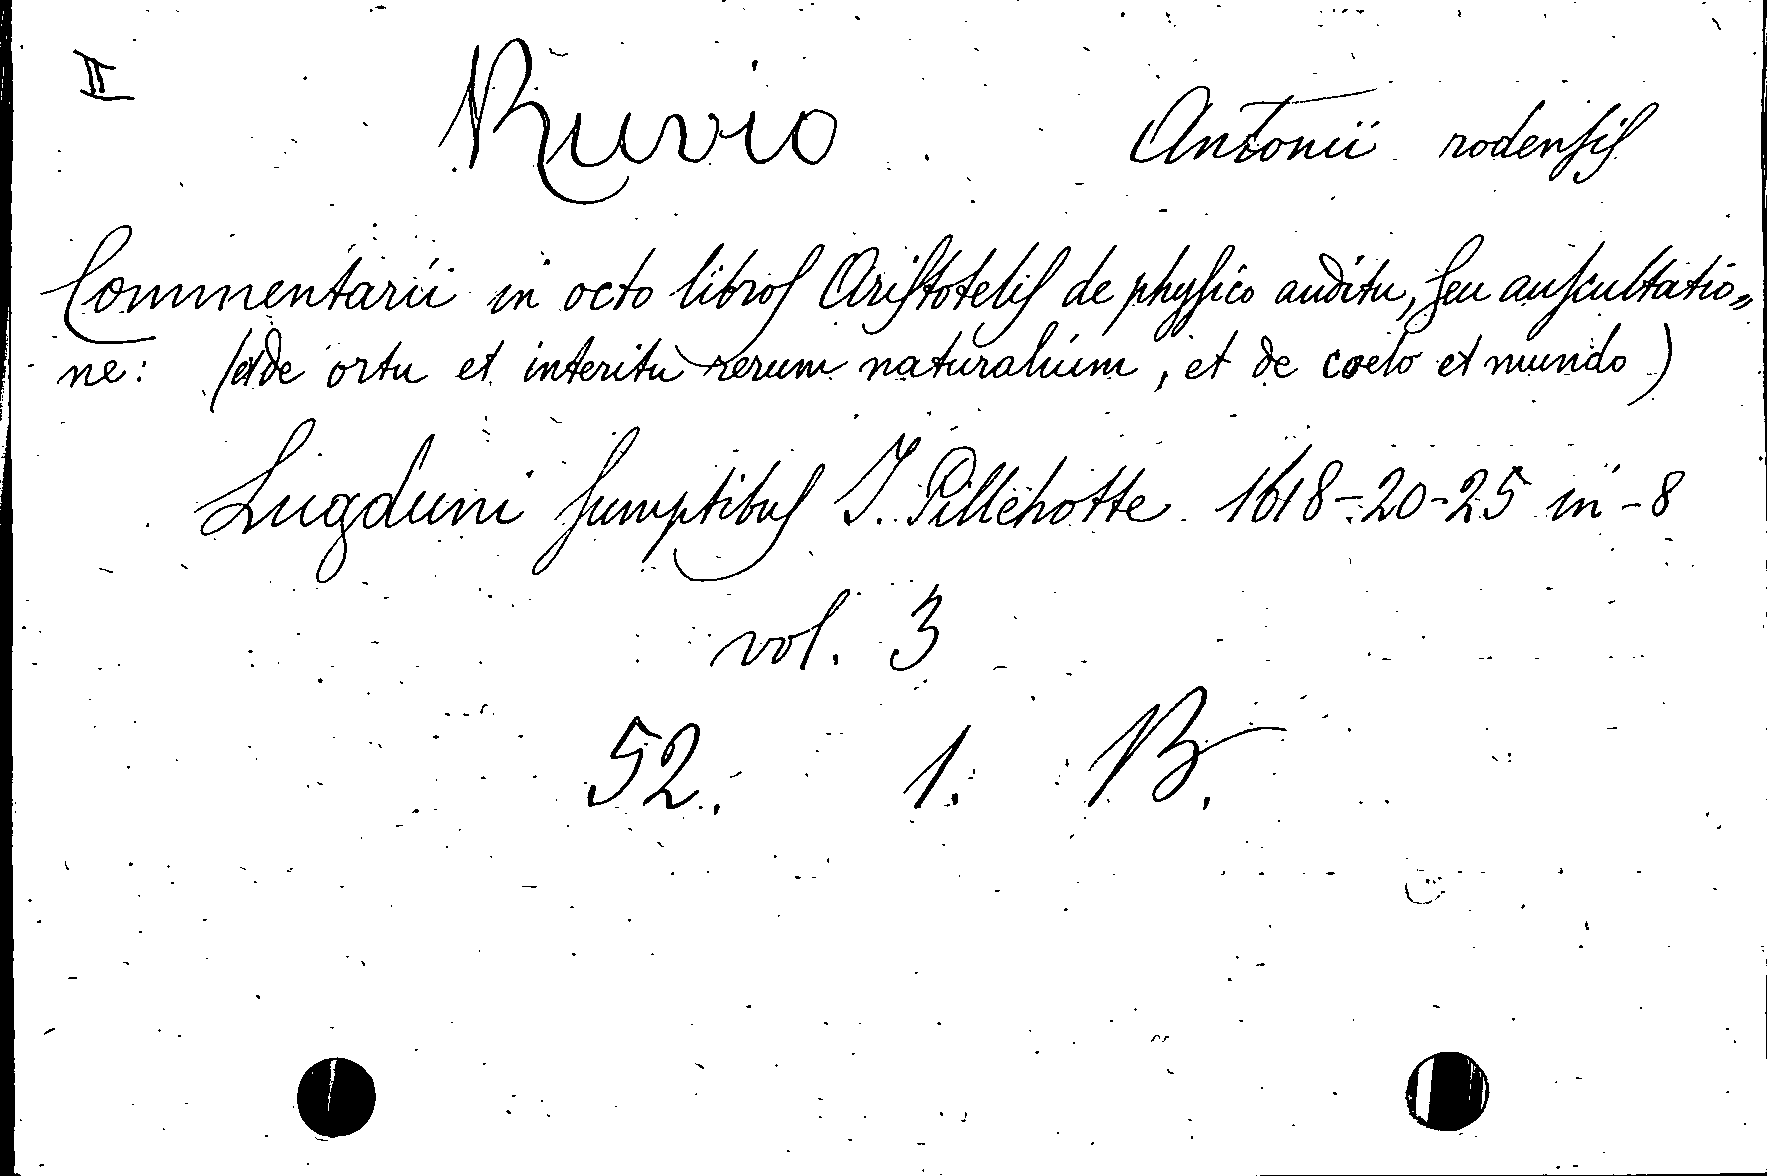 II Ruvio Antonii rodensis
Commentarii in octo libros Aristotelis de physico auditu, seu auscultatio„
ne: (et de ortu et interitu rerum naturalium, et de coelo et mundo)
Lugduni sumptibus J. Pillehotte 1618-20-25 in-8
vol. 3
52. 1. B.